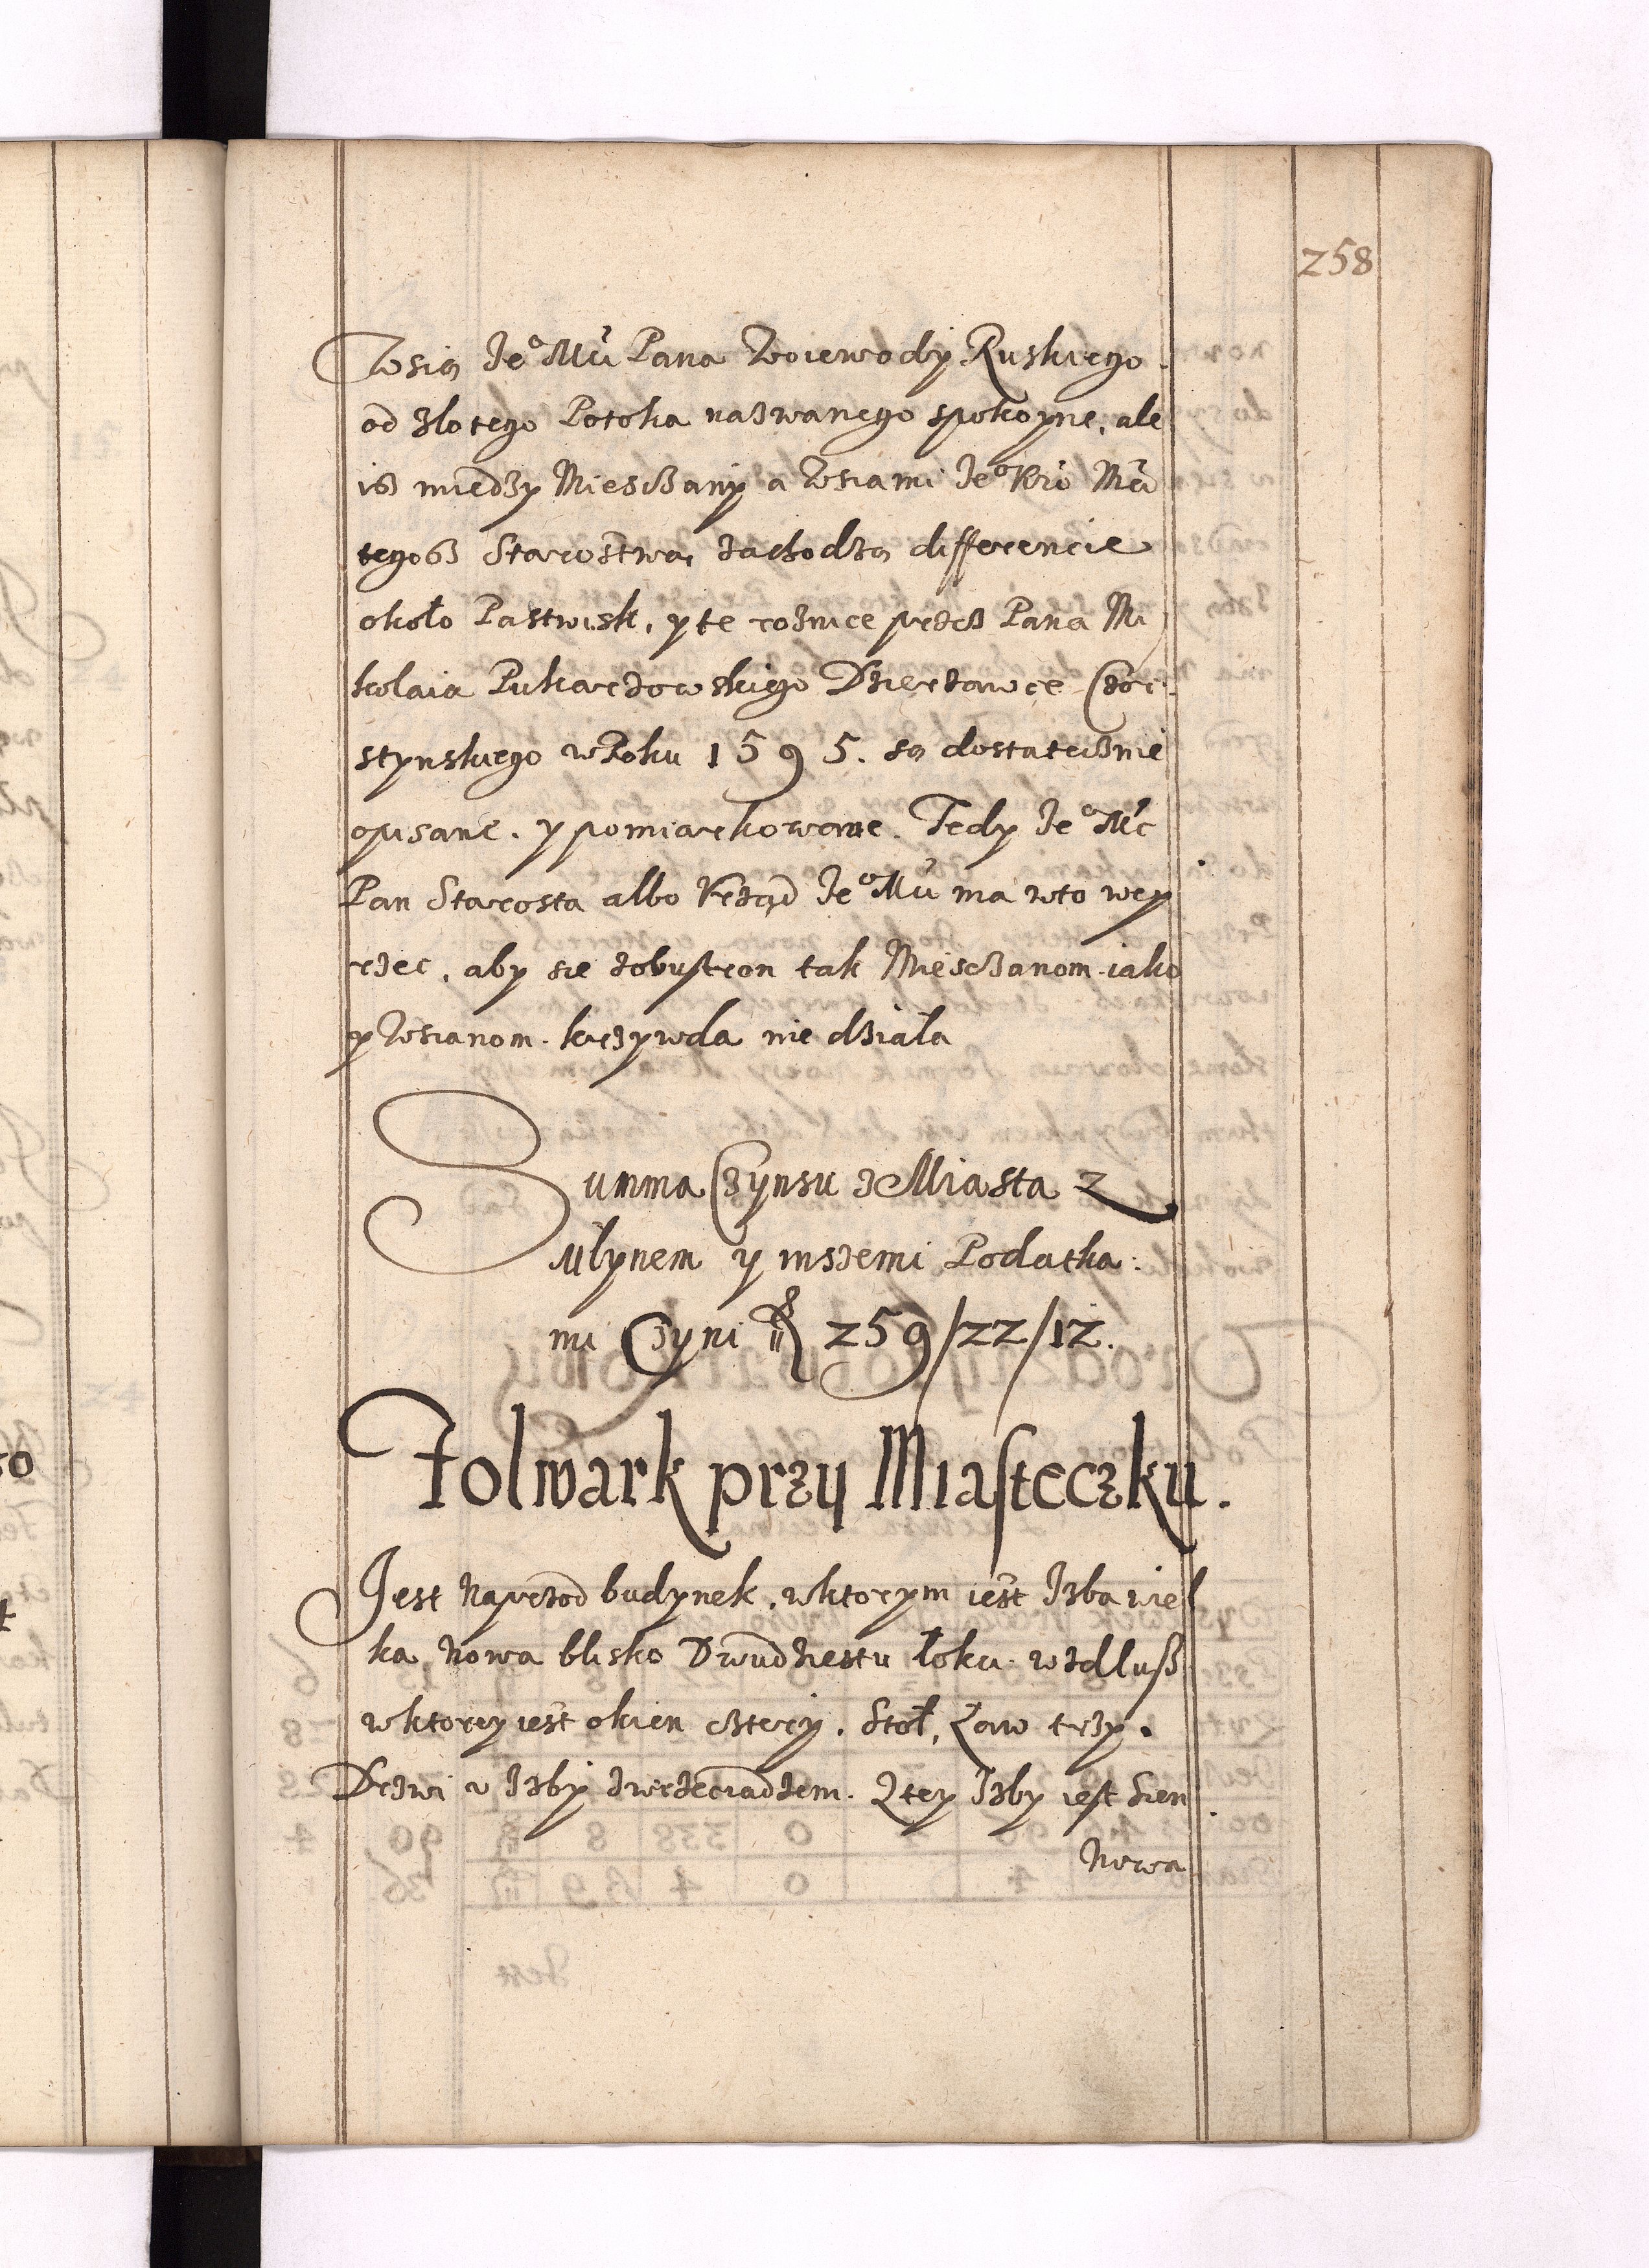 258
Wsią Jeº Mći Pana Woiewody Ruskiego.
od Zlotego Potoka nazwanego spokoyne, ale
iß miedzy Miesczany a Wsiami Jeº Kró Mći
tegoß Starostwa, zachodzą differencie
około Pastwisk, y te roznice przeß Pana Mi
kolaia Pukarzowskiego Dzierzawce Czor:
stynskiego w Roku 1595. są dostatecznie
opisane. y pomiarkowane. Tedy Jeº Mć
Pan Starosta albo Vrząd Jeº Mći ma wto wey
rzec, aby sie zobustron tak Miesczanom iako
y Wsianom. krzywda nie działa
Summa Czynsu z Miasta z
Młynem y inszemi Podatka:
mi Czyni 259/22/12.
Folwark przy Miasteczku.
Jest Naprzod budynek, wktorym iest Izba wiel
ka Nowa blisko Dwudziestu łokci wzdluß
wktorey iest okien cztery. Stoł, Ław trzy.
Drzwi v Izby zwrzeciadzem. Ztey Izby iest Sien
Nowa